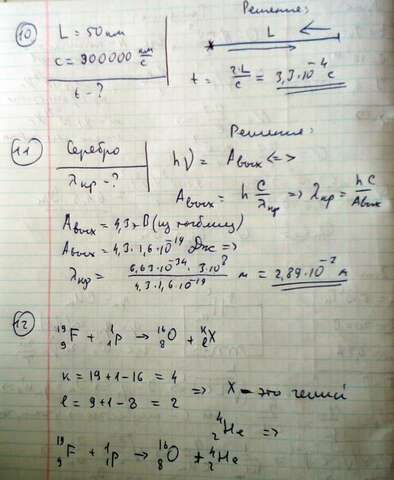 Решение:
10 L = 50 км
L
c = 300000 км/с
t - ?
t = 2·L/c = 3,3·10⁻⁴ c
Решение:
11 Серебро
λкр - ?
hν = Aвых <=>
Aвых = h c/λкр => λкр = hc/Aвых
Aвых = 4,3 эВ (из таблиц)
Aвых = 4,3·1,6·10⁻¹⁹ Дж =>
λкр = 6,63·10⁻³⁴·3·10⁸ / 4,3·1,6·10⁻¹⁹ м = 2,89·10⁻⁷ м
12
¹⁹₉F + ¹₁p → ¹⁶₈O + ᵏₗX
k = 19+1-16 = 4
l = 9+1-8 = 2
=> X - это гелий
⁴₂He =>
¹⁹₉F + ¹₁p → ¹⁶₈O + ⁴₂He